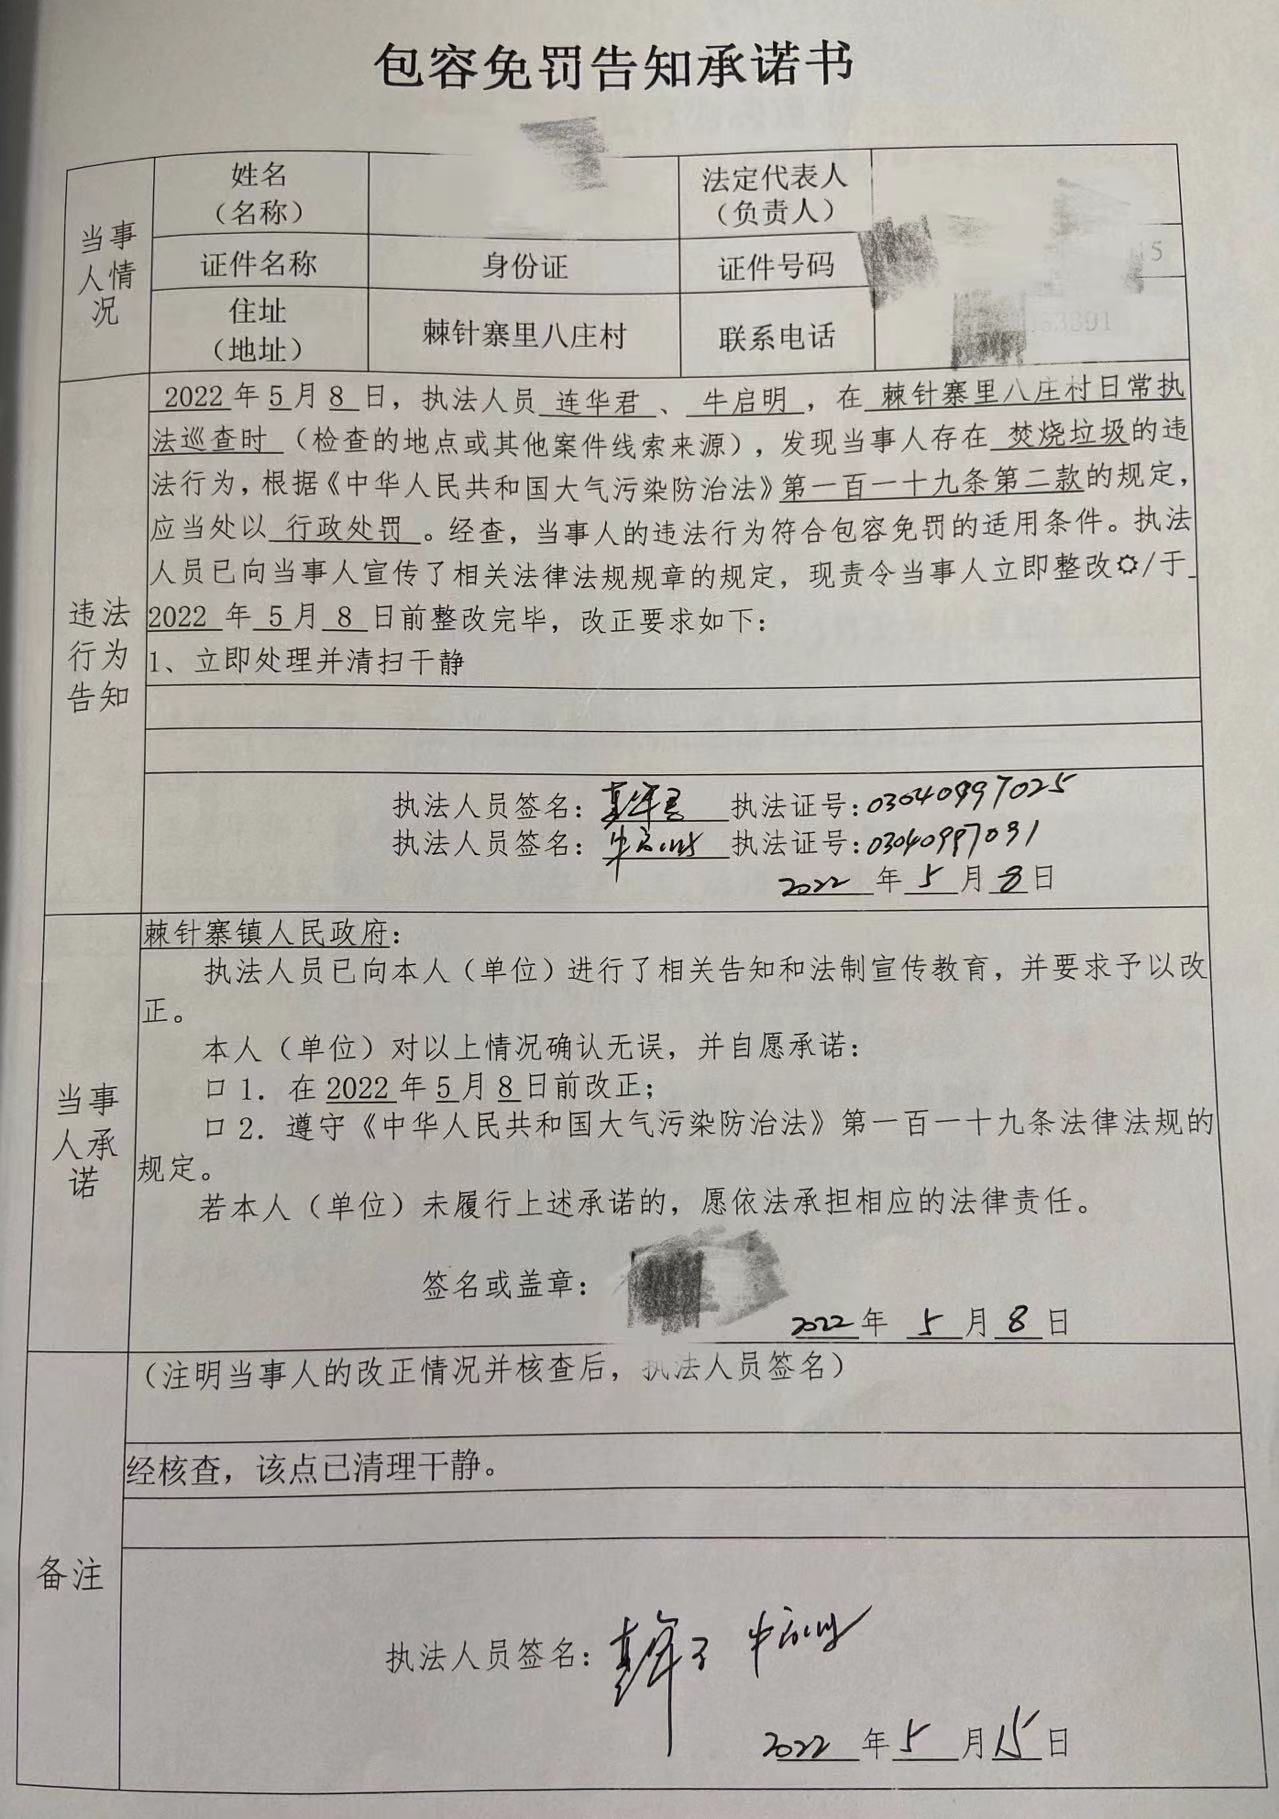 包容免罚告知承诺书
当事人情况
姓名（名称）
法定代表人（负责人）
证件名称
身份证
证件号码
5
住址（地址）
棘针寨里八庄村
联系电话
3891
违法行为告知
2022年5月8日，执法人员 连华君、牛启明，在 棘针寨里八庄村日常执
法巡查时（检查的地点或其他案件线索来源），发现当事人存在 焚烧垃圾的违
法行为，根据《中华人民共和国大气污染防治法》第一百一十九条第二款的规定，
应当处以 行政处罚。经查，当事人的违法行为符合包容免罚的适用条件。执法
人员已向当事人宣传了相关法律法规规章的规定，现责令当事人立即整改✡/于
2022 年 5 月 8 日前整改完毕，改正要求如下：
1、立即处理并清扫干静
执法人员签名： 执法证号：03040997025
执法人员签名：牛启明 执法证号：03040997031
2022 年 5 月 8 日
当事人承诺
棘针寨镇人民政府：
执法人员已向本人（单位）进行了相关告知和法制宣传教育，并要求予以改
正。
本人（单位）对以上情况确认无误，并自愿承诺：
口 1. 在 2022 年 5 月 8 日前改正；
口 2. 遵守《中华人民共和国大气污染防治法》第一百一十九条法律法规的
规定。
若本人（单位）未履行上述承诺的，愿依法承担相应的法律责任。
签名或盖章：
2022 年 5 月 8 日
备注
（注明当事人的改正情况并核查后，执法人员签名）
经核查，该点已清理干静。
执法人员签名： 牛启明
2022 年 5 月 15 日